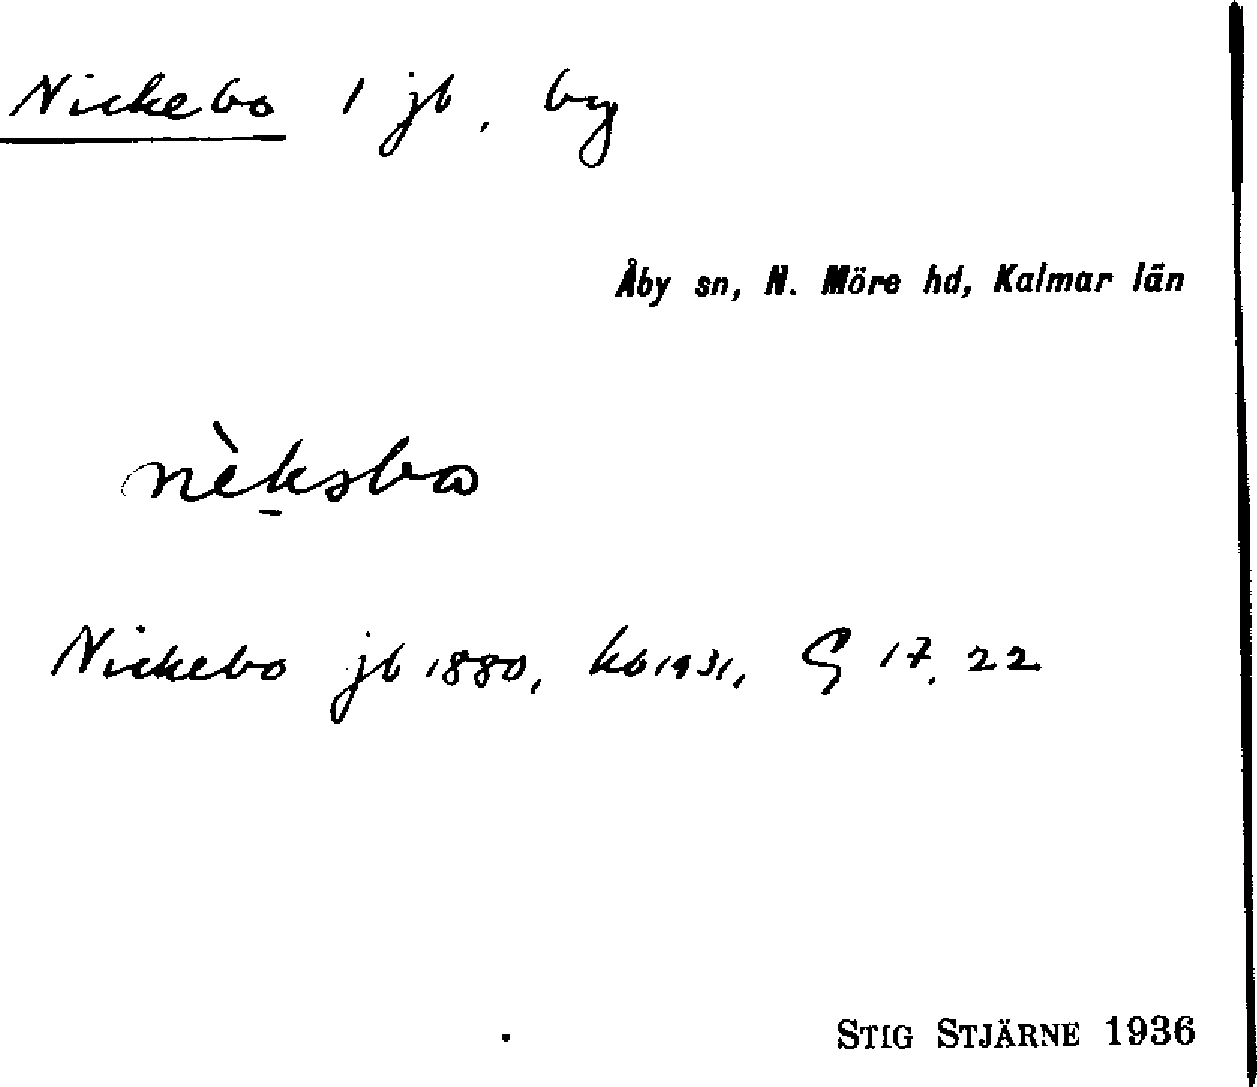 Nickebo 1 jb, by
Åby sn, N. Möre hd, Kalmar län
nèksbo
Nickebo jb 1880, kb 1931, G 17, 22
STIG STJÄRNE 1936